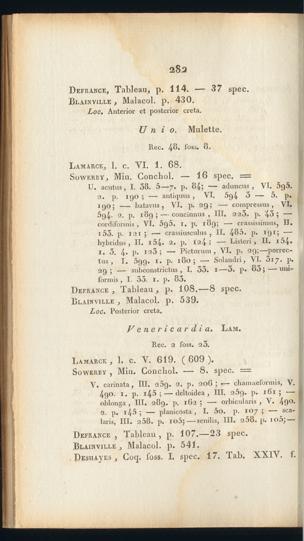 282
DEFRANCE, Tableau, p. 114. — 37 spec.
BLAINVILLE, Malacol. p. 430.
Loc. Anterior et posterior creta.
Unio. Mulette.
Rec. 48. foss. 8.
LAMARCK, l. c. VI. 1. 68.
SOWERBY, Min. Conchol. — 16 spec. =
U. acutus, I. 38. 5—7. p. 84; — aduncus, VI. 595.
2. p. 190; — antiquus, VI. 594 3 — 5. p.
190; — batavus, VI. p. 29; — compressus, VI.
594. 2. p. 189; — concinnus, III. 223. p. 43; —
cordiformis, VI. 593. 1. p. 189; — crassissimus, II.
153. p. 121; — crassiusculus, II. 485. p. 191; —
hybridus, II. 154. 2. p. 124; — Listeri, II. 154.
1. 3. 4. p. 123; — Pictorum, VI. p. 29; — porrec-
tus, I. 599. 1. p. 180; — Solandri, VI. 517. p.
29; — subconstrictus, I. 33. 1—3. p. 83; — uni-
formis, I. 33. 1. p. 83.
DEFRANCE, Tableau, p. 108.—8 spec.
BLAINVILLE, Malacol. p. 539.
Loc. Posterior creta.
Venericardia. LAM.
Rec. 2 foss. 23.
LAMARCK, l. c. V. 619. (609).
SOWERBY, Min. Conchol. — 8. spec. =
V. carinata, III. 259. 2. p. 206; — chamaeformis, V.
490. 1. p. 145; — deltoidea, III. 259. p. 161; —
oblonga, III. 289. p. 162; — orbicularis, V. 490.
2. p. 145; — planicosta, I. 50. p. 107; — sca-
laris, III. 258. p. 105; — senilis, III. 258. p. 105; —
DEFRANCE, Tableau, p. 107.—23 spec.
BLAINVILLE, Malacol. p. 541.
DESHAYES, Coq. foss. I. spec. 17. Tab. XXIV. f.